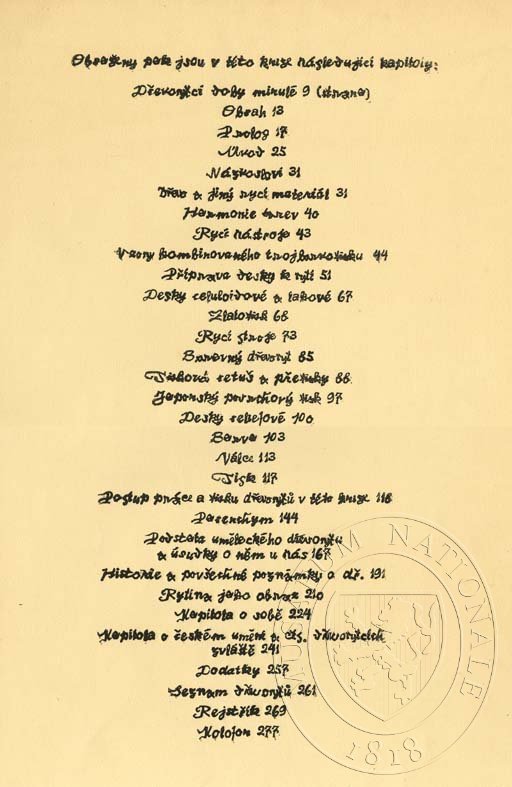 Obsaženy pak jsou v této knize následující kapitoly:
Dřevorytci doby minulé 9 (strana)
Obsah 13
Prolog 17
Úvod 25
Názvosloví 31
Dřevo & jiný rycí materiál 31
Harmonie barev 40
Rycí nástroje 43
Vzory kombinovaného trojbarvotisku 44
Příprava desky k rytí 51
Desky celuloidové & lakové 67
Zlatotisk 68
Rycí stroje 73
Barevný dřevoryt 85
Tisková retuš & přetisky 88
Japonský povrchový tisk 97
Desky reliefové 100
Barva 103
Válce 113
Tisk 117
Postup práce a tisku dřevorytů v této knize 118
Parenchym 144
Podstata uměleckého dřevorytu
& úsudky o něm u nás 167
Historie & povšechné poznámky o dř. 191
Rytina jako obraz 210
Kapitola o sobě 224
Kapitola o českém umění & čs. dřevorytcích
zvláště 241
Dodatky 257
Seznam dřevorytů 261
Rejstřík 269
Kolofon 277
MUSEUM NATIONALE
1818